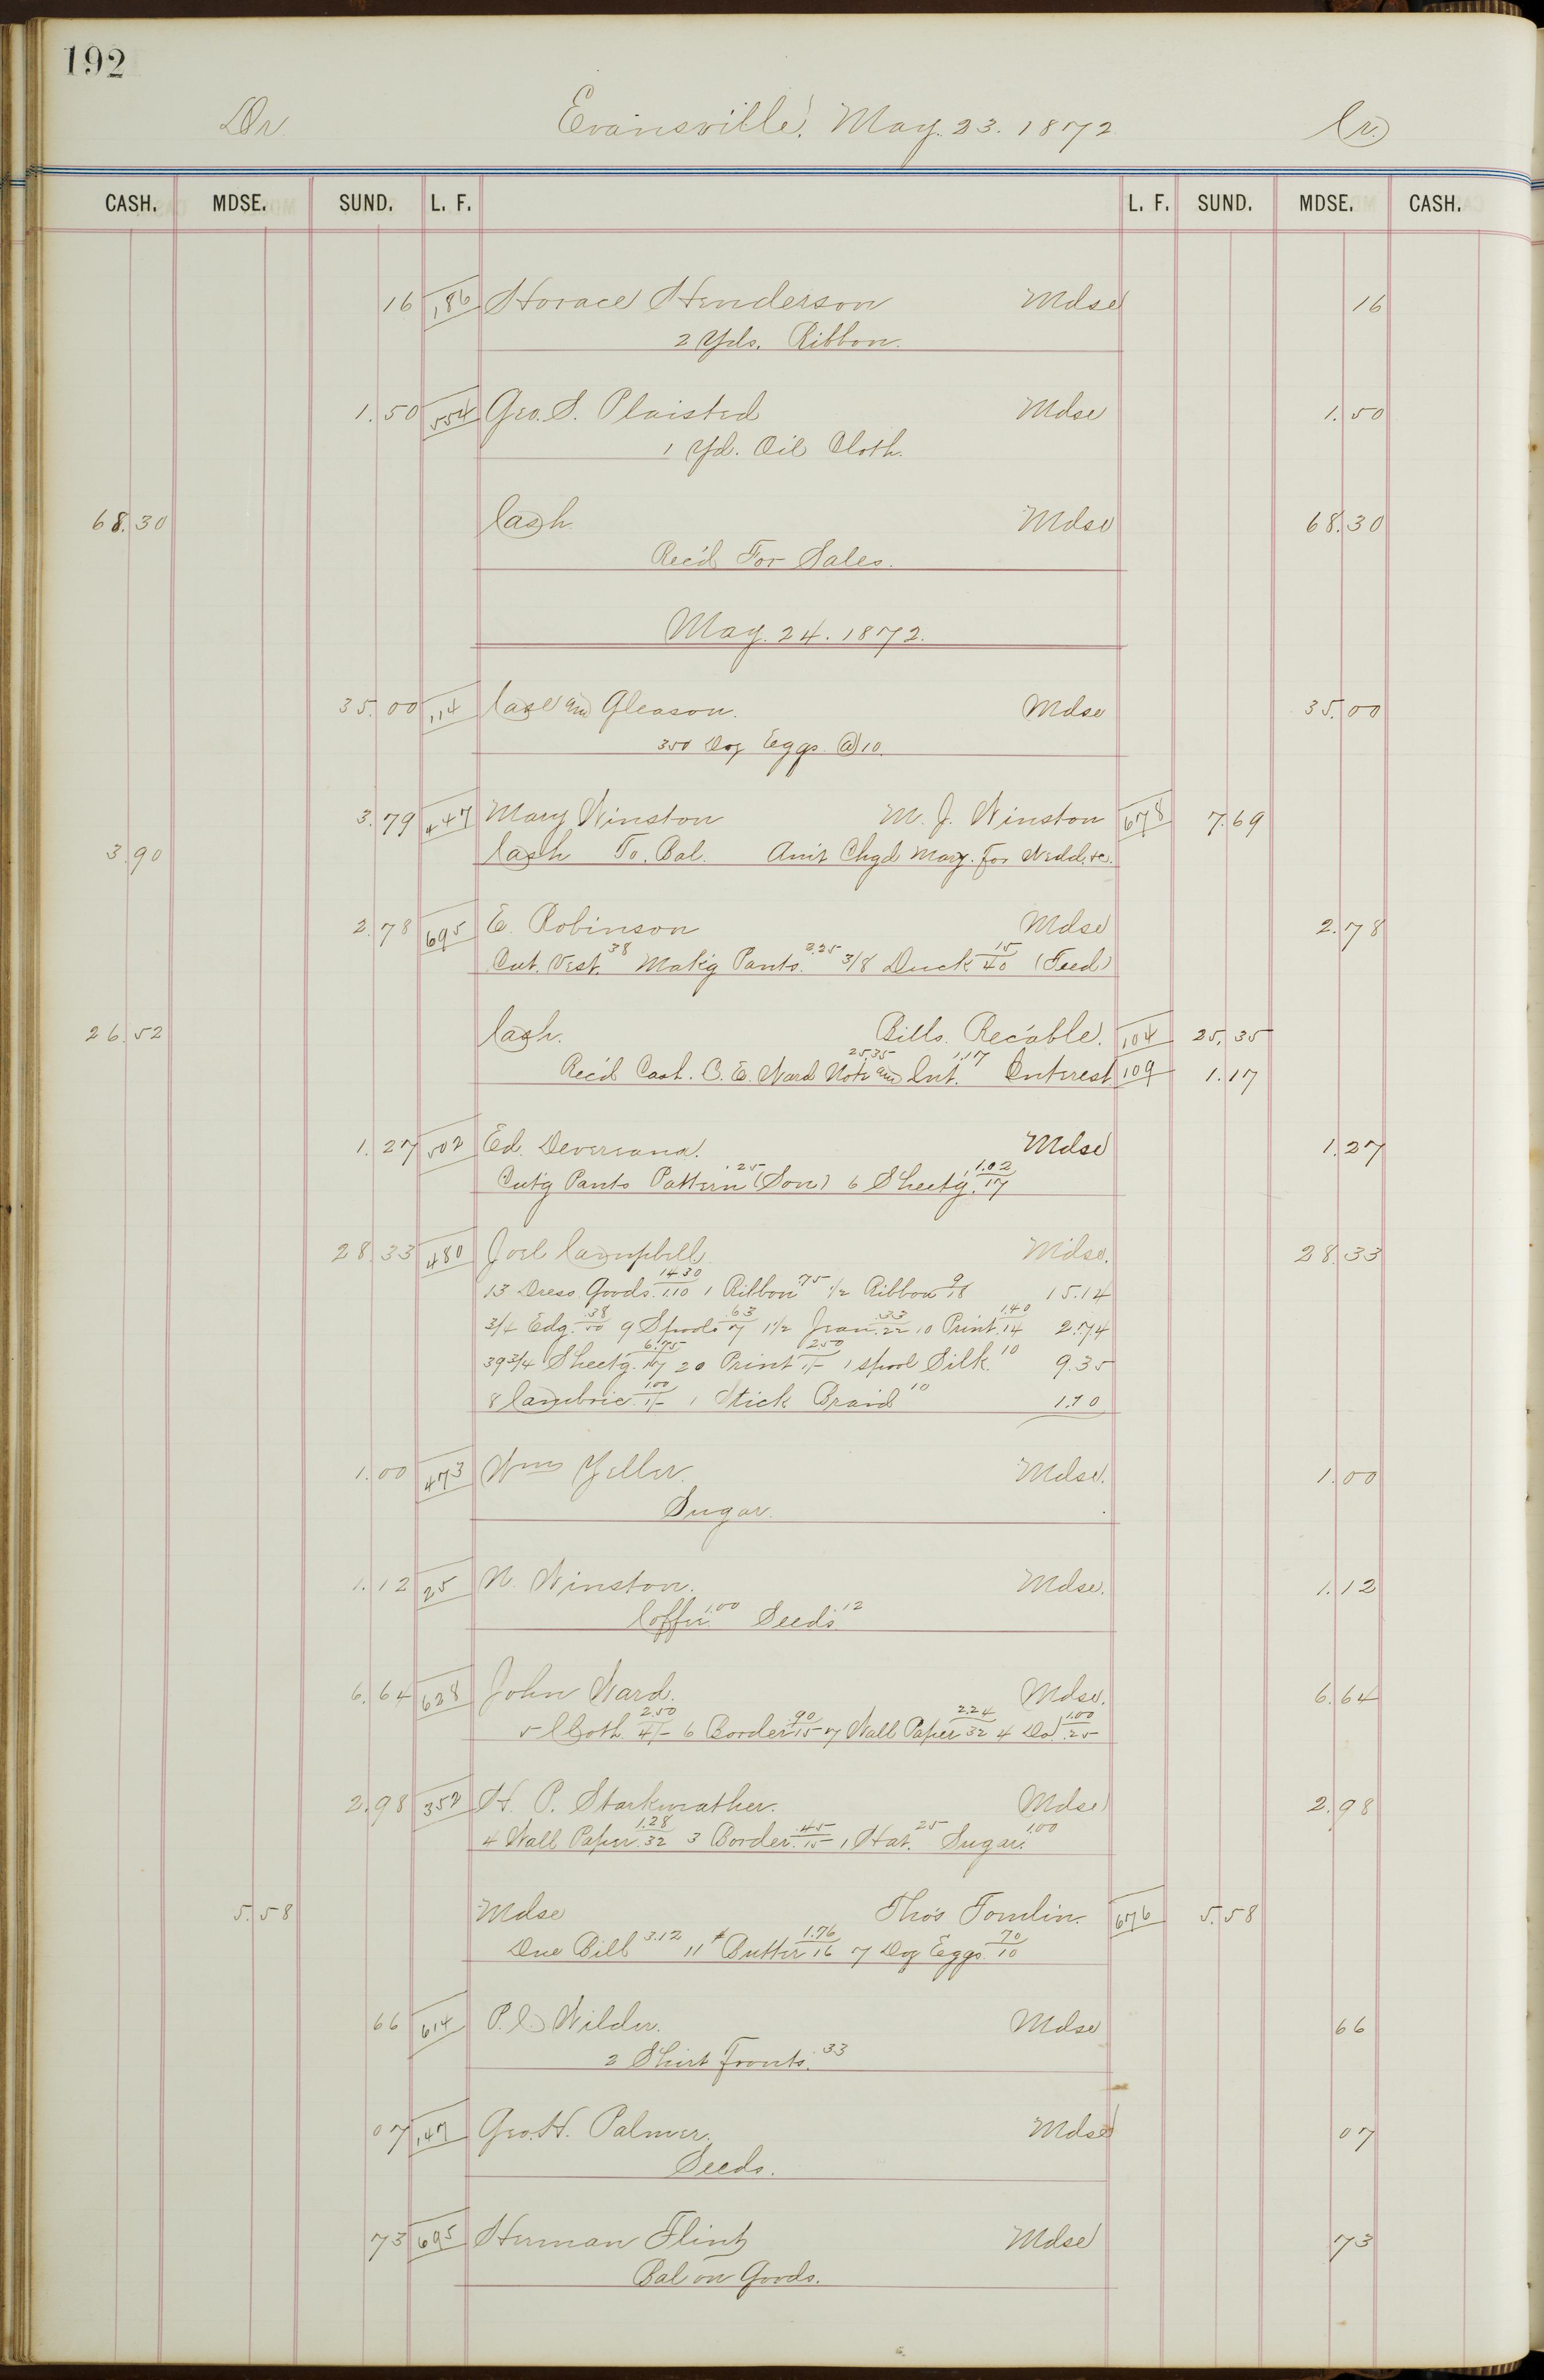 192
Dr. Evansville, May. 23. 1872 Cr.
CASH. MDSE. SUND. L. F. L. F. SUND. MDSE. CASH.
16 186 Horace Henderson Mdse 16
2 Yds. Ribbon.
1.50 554 Geo. S. Plaisted Mdse 1.50
1 Yd. Oil Cloth.
68.30 Cash Mdse 68.30
Rec'd For Sales.
May. 24. 1872.
35.00 114 Case and Gleason. Mdse 35.00
350 Doz Eggs @ 10.
3.79 447 Mary Winston M. J. Winston 678 7.69
3.90 Cash To. Bal. Am't Chgd Mary. For Wedd. &c.
2.78 695 E. Robinson Mdse 2.78
Cut. Vest. 38 Mak'g Pants. 2.25 3/8 Duck 15/40 (Feed)
26.52 Cash. Bills. Rec'able. 104 25.35
Rec'd Cash. C. E. Ward Note 25.35 and Int. 1.17 Interest 109 1.17
1.27 502 Ed. Devereaux. Mdse 1.27
Cut'g Pants Pattern .25 (Son) 6 Sheet'g. 1.02/17
28.33 480 Joel Campbell. Mdse. 28.33
13 Dress Goods. 14.30/1.10 1 Ribbon .75 1/2 Ribbon 9/18 15.14
3/4 Edg. .38/50 9 Spools .63/7 1 1/2 Jean .33/.22 10 Print. 1.40/14 2.74
39 3/4 Sheet'g. 6.75/17 20 Print 2.50/1/- 1 spool Silk. 10 9.35
8 Cambric. 1.00/1/- 1 Stick Braid 10 1.10
1.00 473 Wm Yeller. Mdse. 1.00
Sugar.
1.12 25 N. Winston. Mdse. 1.12
Coffee. 1.00 Seeds. .12
6.64 628 John Ward. Mdse. 6.64
5 Cloth. 2.50/4/- 6 Border .90/15 7 Wall Paper 2.24/32 4 Do. 1.00/.25
2.98 352 H. P. Starkweather. Mdse 2.98
4 Wall Paper. 1.28/32 3 Border. .45/15 1 Hat. 25 Sugar. 1.00
5.58 Mdse Thos Tomlin. 676 5.58
Due Bill 3.12 11# Butter 1.76/16 7 Doz Eggs. 70/10
66 614 P. C. Wilder. Mdse 66
2 Shirt Fronts. .33
07 147 Geo. H. Palmer. Mdse 07
Seeds.
73 695 Herman Flint Mdse 73
Bal on Goods.